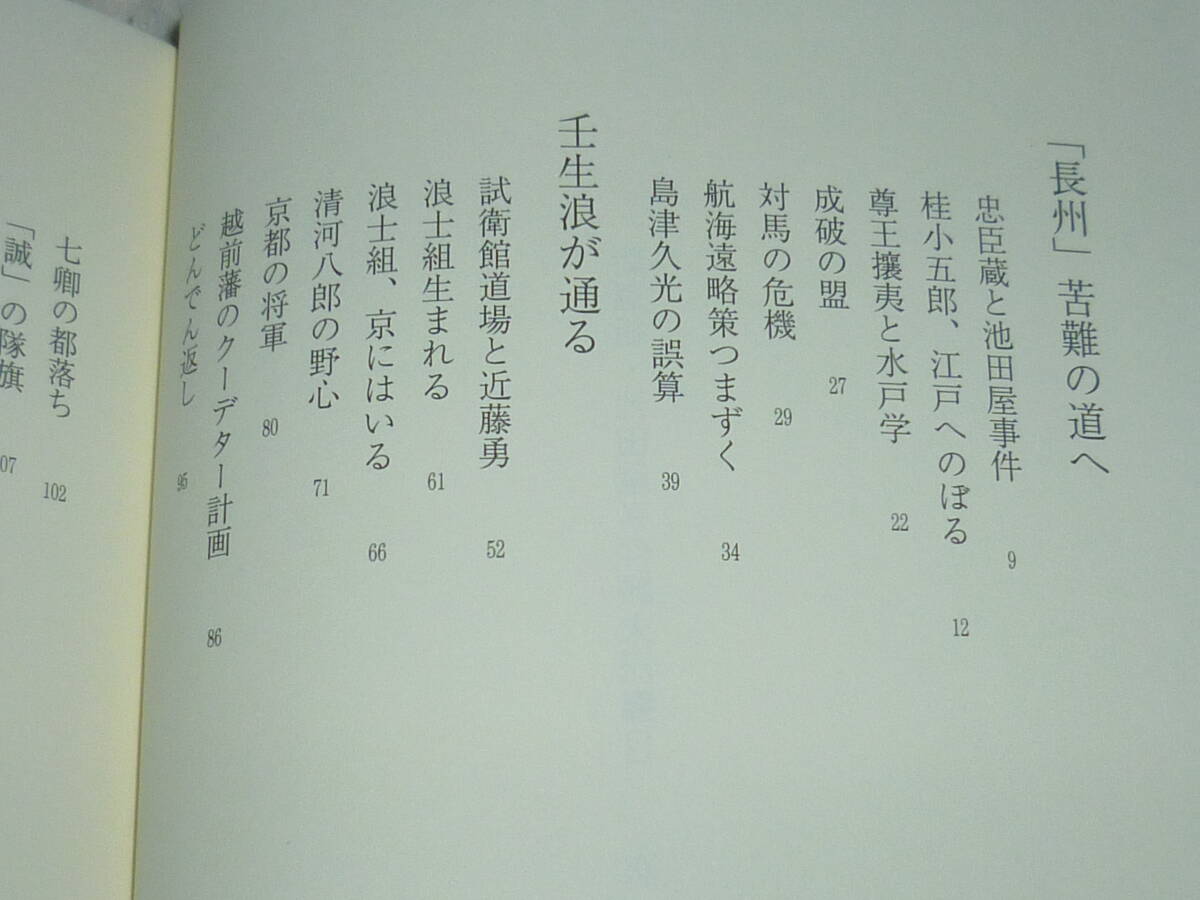 「長州」苦難の道へ
忠臣蔵と池田屋事件 9
桂小五郎、江戸へのぼる 12
尊王攘夷と水戸学 22
成破の盟 27
対馬の危機 29
航海遠略策つまずく 34
島津久光の誤算 39
壬生浪が通る
試衛館道場と近藤勇 52
浪士組生まれる 61
浪士組、京にはいる 66
清河八郎の野心 71
京都の将軍 80
越前藩のクーデター計画 86
どんでん返し 95
七卿の都落ち 102
「誠」の隊旗 07